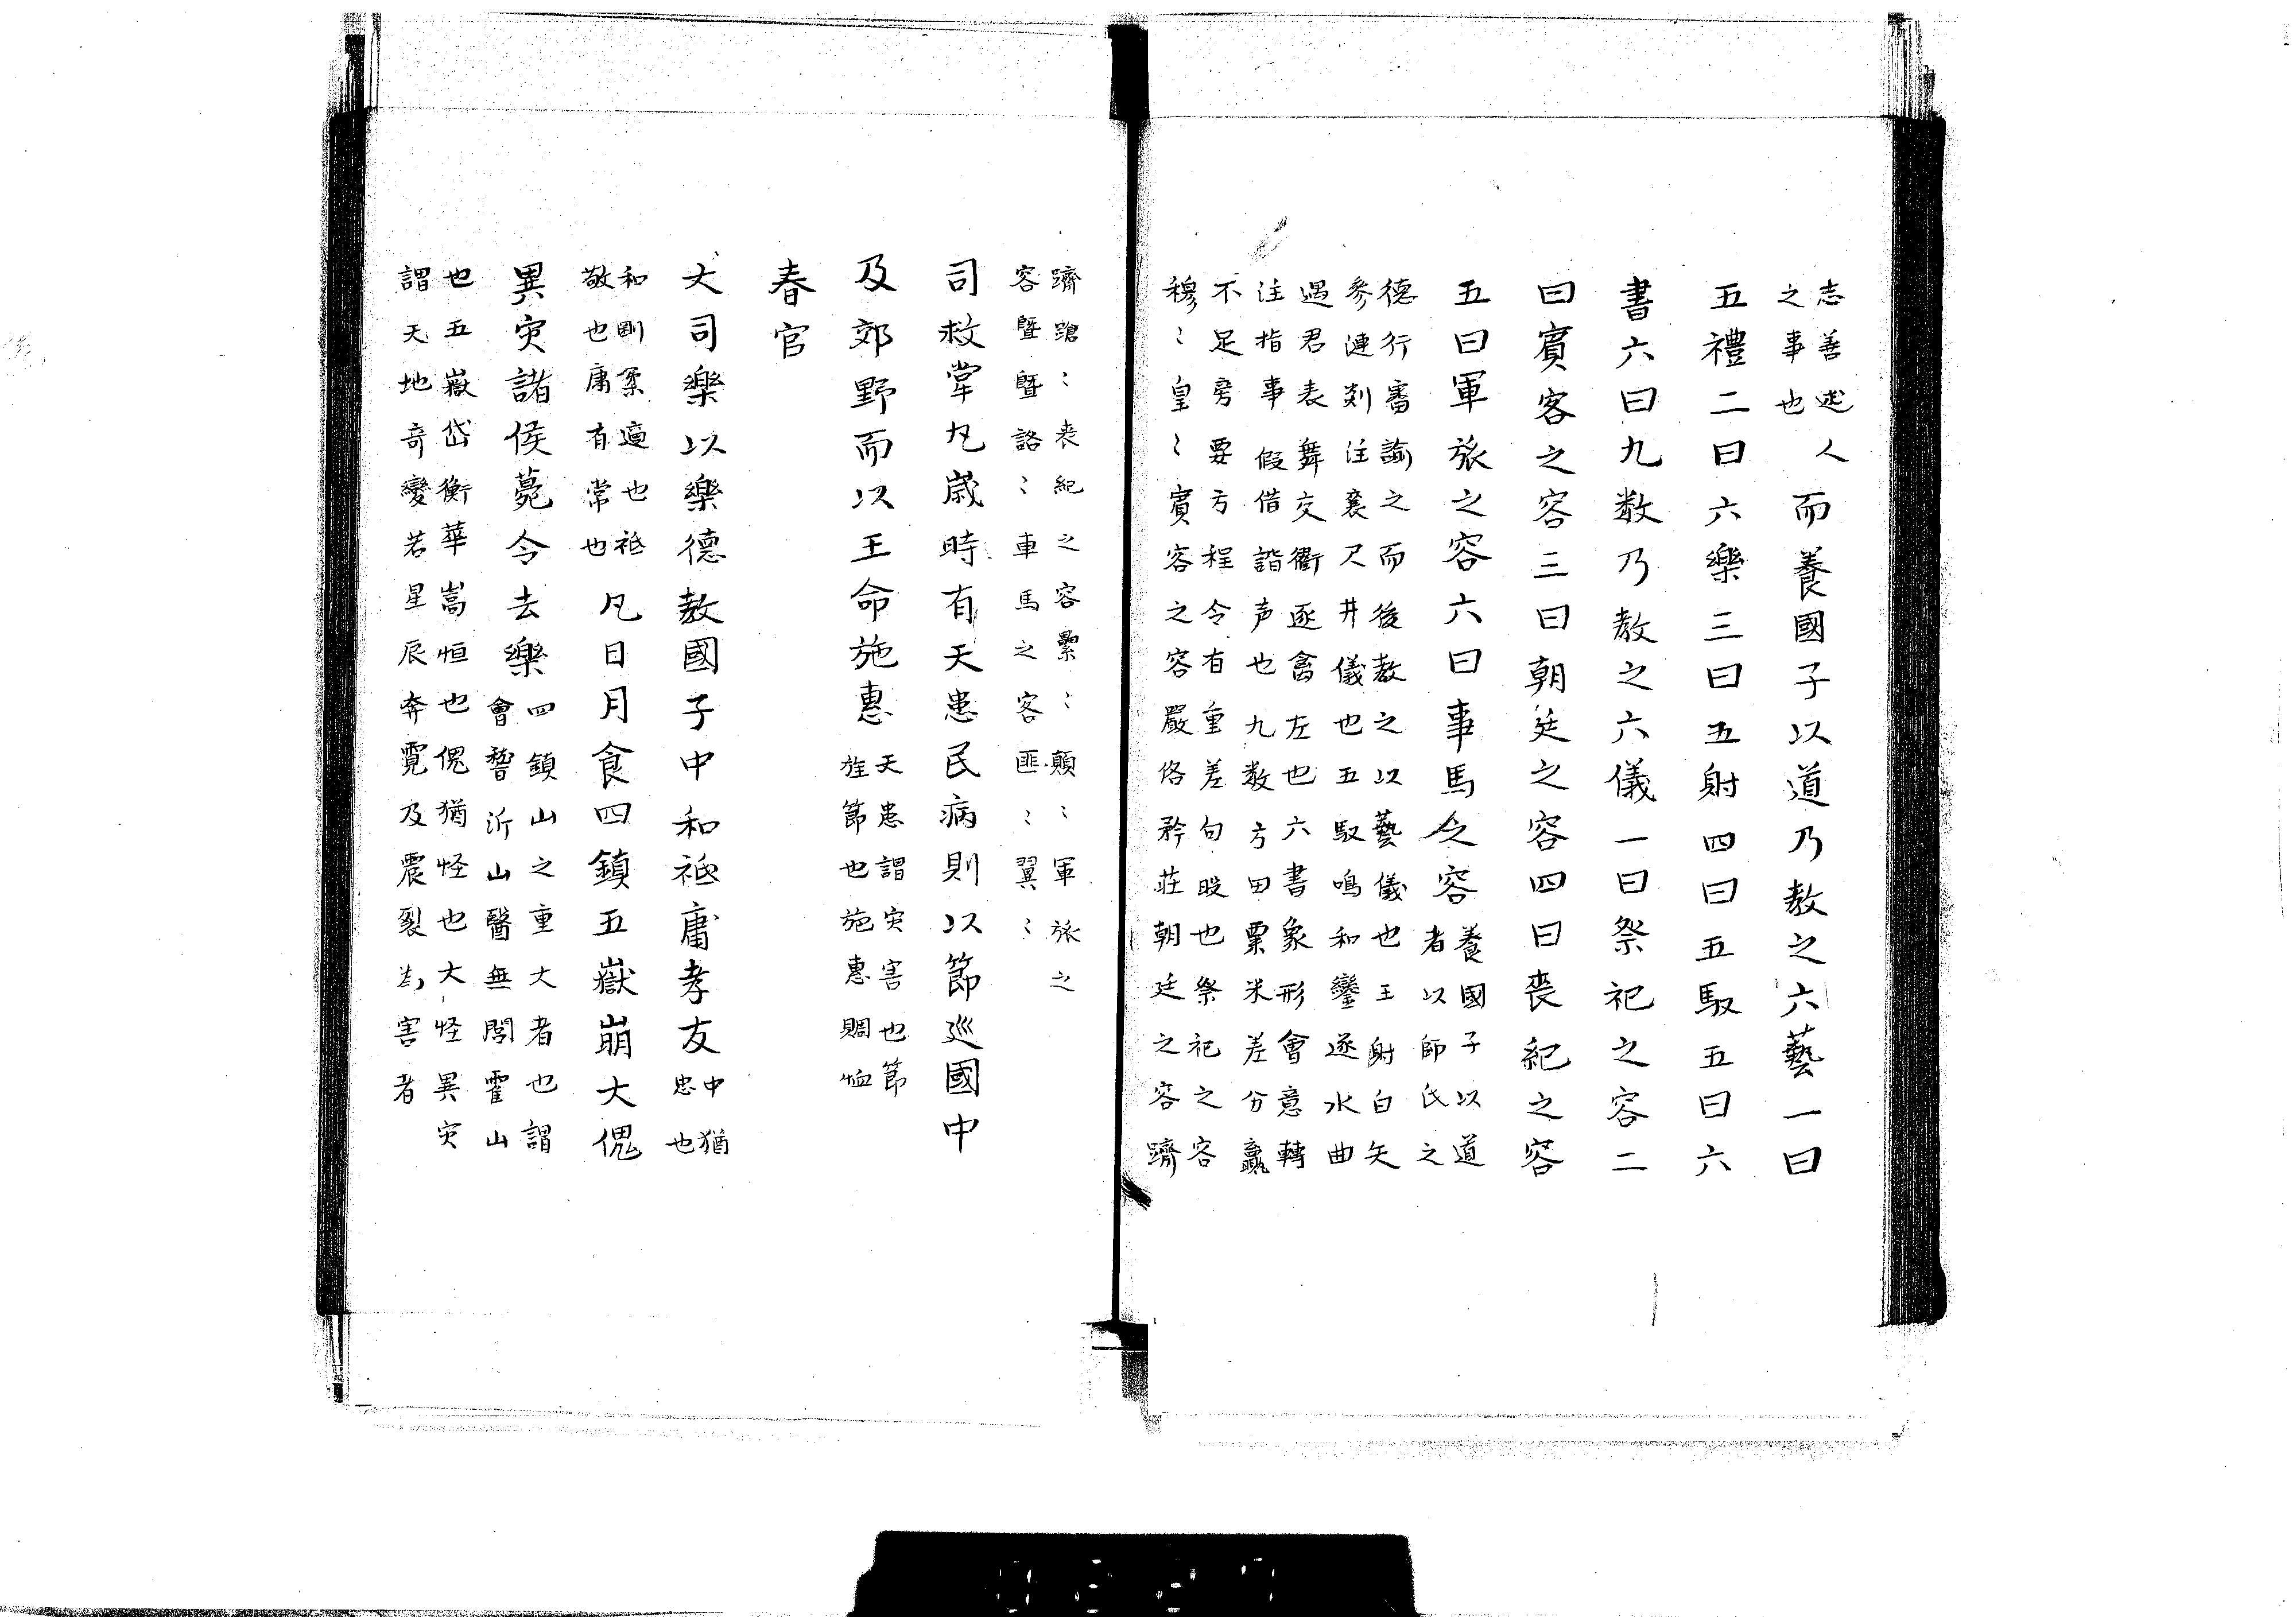 志善述
之事也
人而養國子以道乃教之六藝一曰
五禮二曰六樂三曰五射四曰五馭五曰六
書六曰九数乃教之六儀一曰祭祀之容二
曰賓客之容三曰朝廷之容四曰喪紀之容
五曰軍旅之容六曰車馬之容
養國子以道
者以師氏之
德行審諭之而後教之以藝儀也五射白矢
參連剡注襄尺井儀也五馭鳴和鸞逐水曲
過君表舞交衢逐禽左也六書象形會意轉
注指事假借諧声也九数方田粟米差分嬴
不足旁要方程今有重差句股也祭祀之容
穆〻皇〻賓客之容嚴恪矜莊朝廷之容躋
躋蹌〻喪紀之容纍〻顛〻軍旅之
容曁曁詻〻車馬之容匪〻翼〻
司救掌凡歳時有天患民病則以節巡國中
及郊野而以王命施惠
天患謂灾害也節
旌節也施惠賙恤
春官
大司樂以樂德教國子中和祗庸孝友
中猶
忠也
和剛柔適也祗
敬也庸有常也
凡日月食四鎮五嶽崩大傀
異灾諸侯薨令去樂
四鎮山之重大者也謂
會稽沂山醫無閭霍山
也五嶽岱衡華嵩恒也傀猶怪也大怪異灾
謂天地奇變若星辰奔霣及震裂為害者